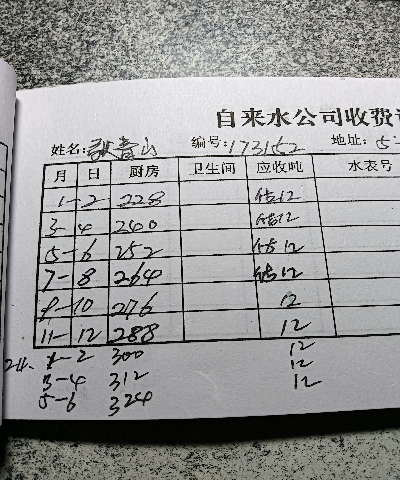 自来水公司收费
姓名: 青山 编号: 173152 地址: 5-
月 日 厨房 卫生间 应收吨 水表号
1-2 228 估12
3-4 240 估12
5-6 252 估12
7-8 264 估12
9-10 276 12
11-12 288 12
24. 1-2 300 12
3-4 312 12
5-6 324 12